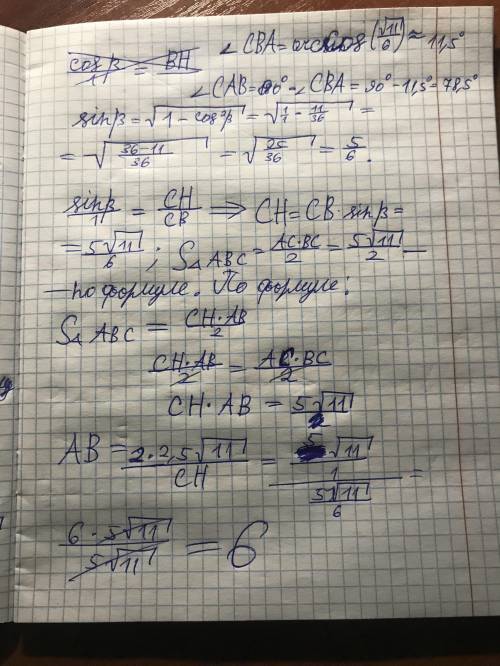 cos β / 1 = BH
∠CBA = arccos(√11/6) ≈ 11,5°
∠CAB = 90° - ∠CBA = 90° - 11,5° = 78,5°
sin β = √(1 - cos²β) = √(1/1 - 11/36) =
= √((36-11)/36) = √(25/36) = 5/6.
sin β / 1 = CH/CB ⟹ CH = CB · sin β =
= 5√11/6 ; S△ABC = AC·BC/2 = 5√11/2 —
— по формуле. По формуле:
S△ABC = CH·AB/2
CH·AB/2 = AC·BC/2
CH · AB = 5√11
AB = 2·2,5√11/CH = (5√11/1)/(5√11/6) =
6·5√11/5√11 = 6